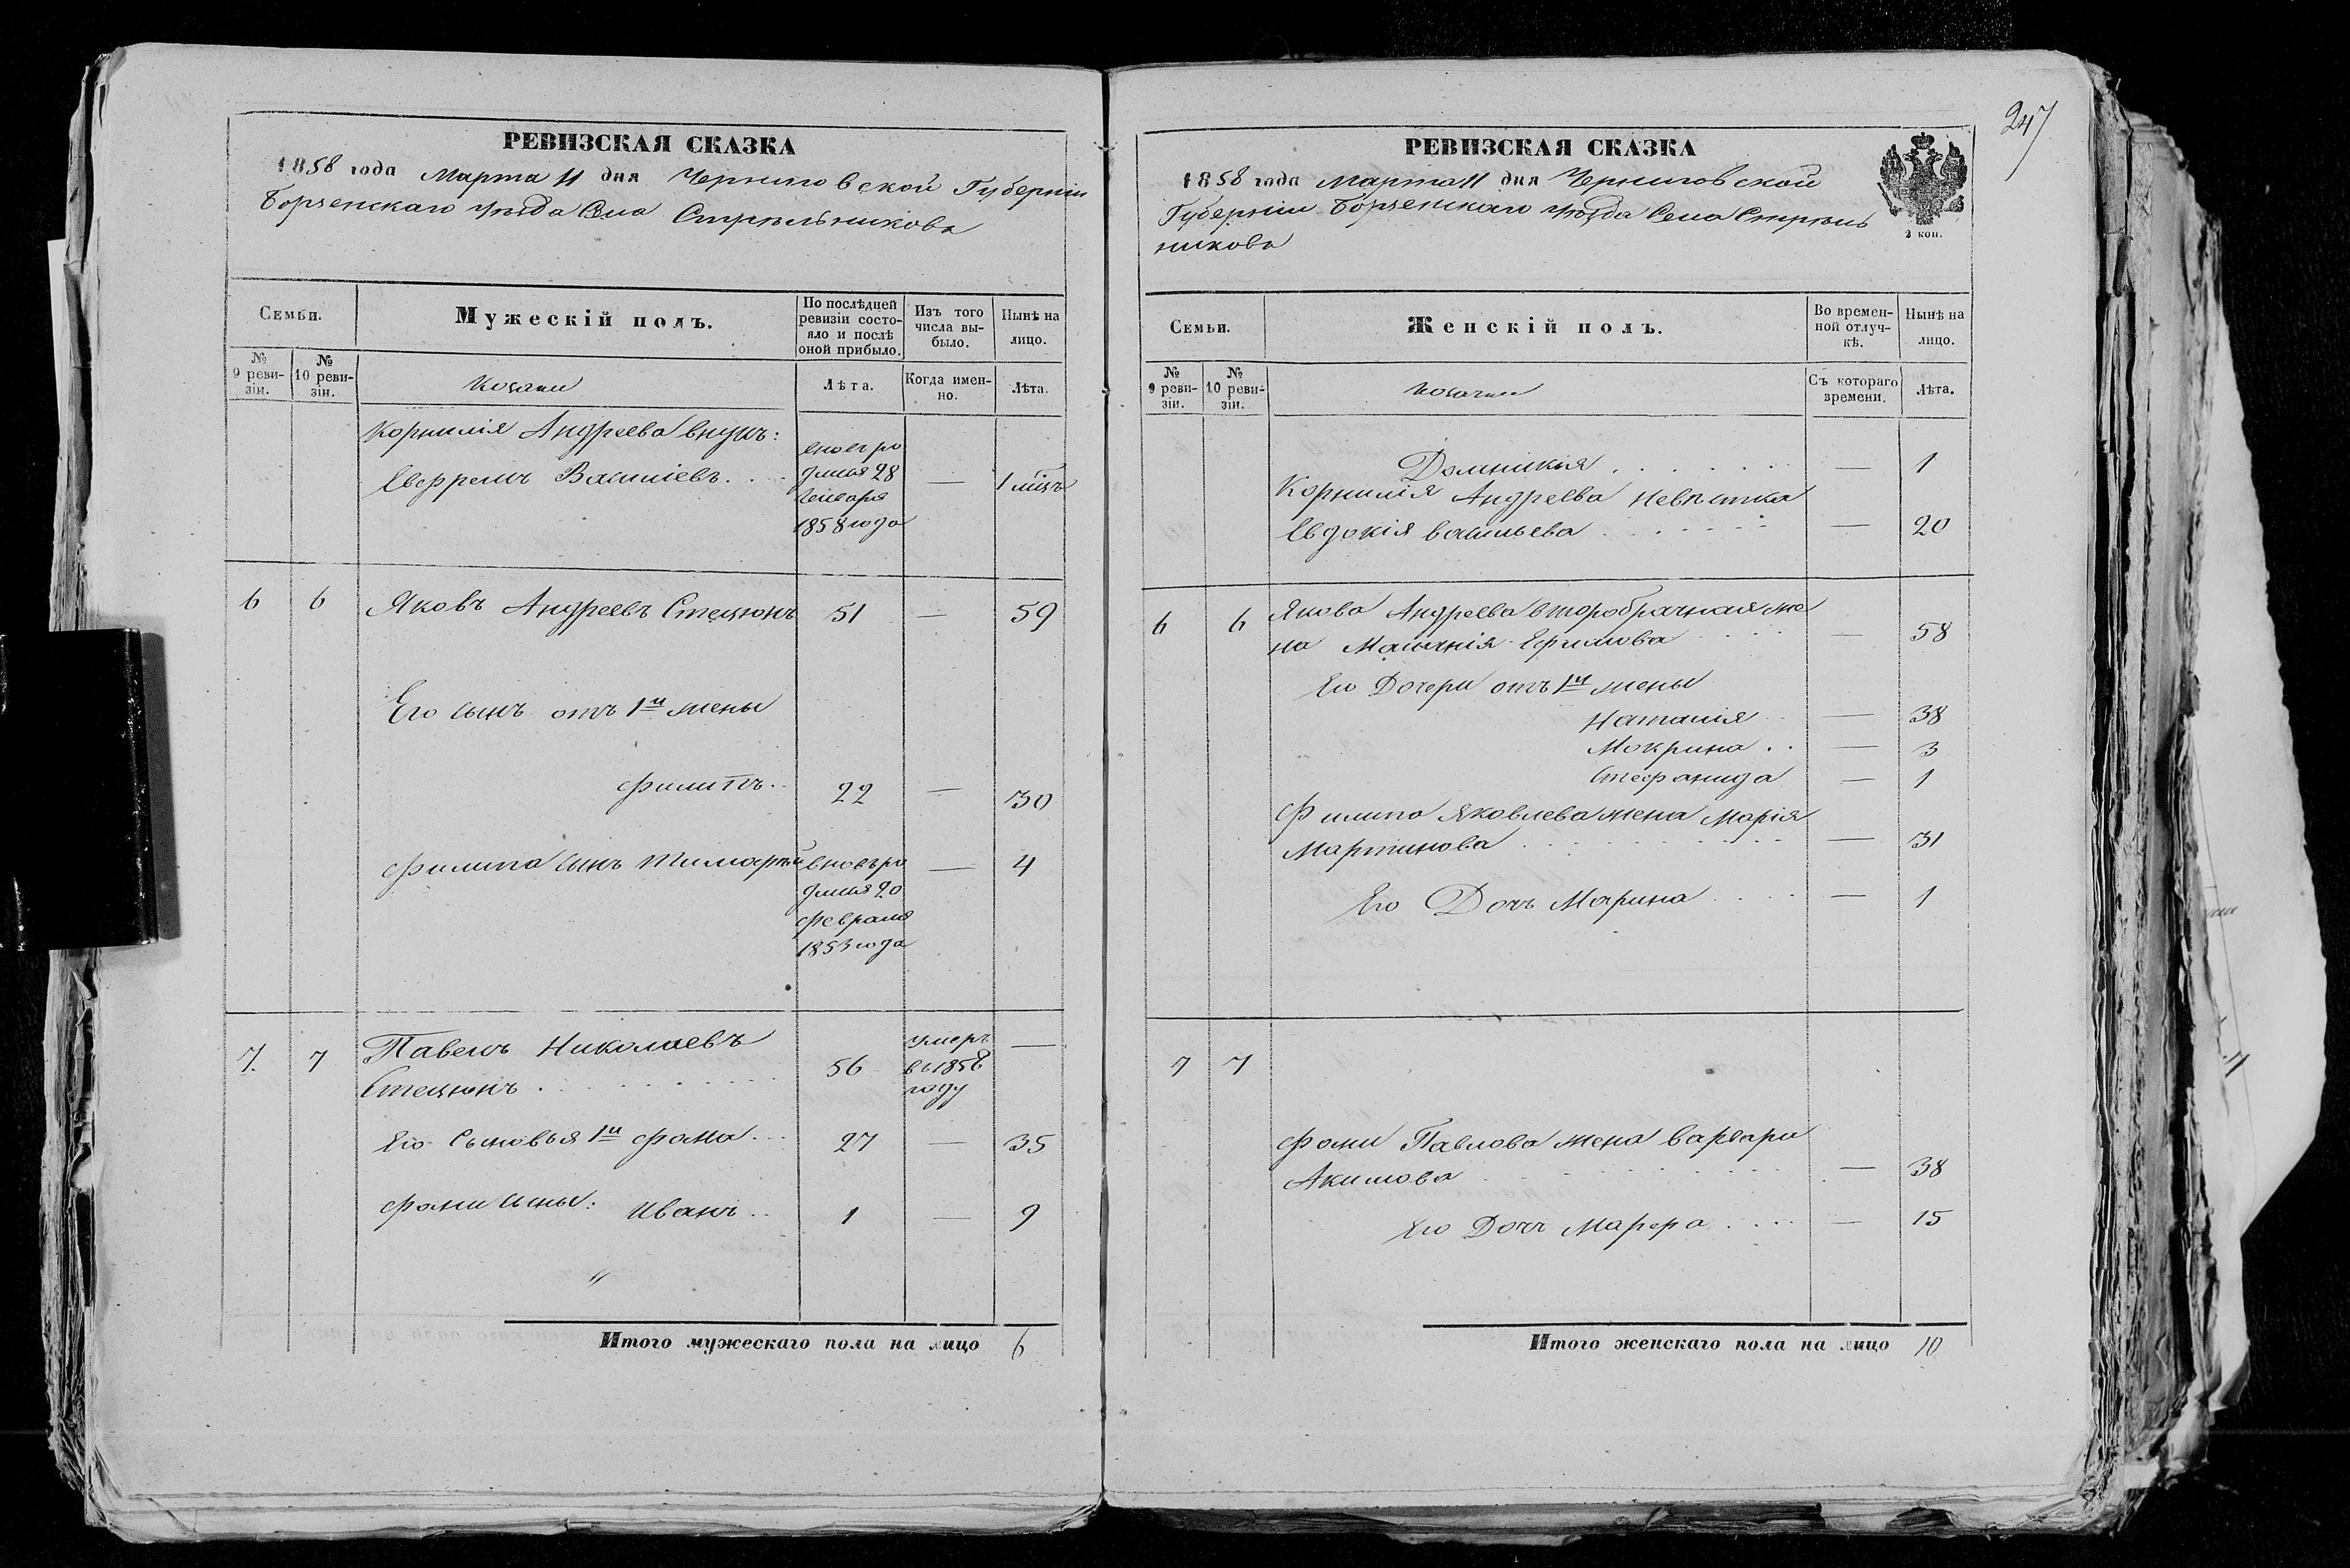 РЕВИЗСКАЯ СКАЗКА
1858 года Марта 11 дня Черниговской Губерніи
Борзенскаго уѣзда Села Стрѣльникова
Семьи.
Мужескій полъ.
По послѣдней ревизіи состояло и послѣ оной прибыло.
Изъ того числа выбыло.
Нынѣ на лицо.
№ 9 ревизіи.
№ 10 ревизіи.
Козаки
Лѣта.
Когда именно.
Лѣта.
Корнилія Андреева внукъ:
Евфремъ Василіевъ. . . вновь ро
дился 28
Генваря
1858 года — 1 мцъ
6 6 Яковъ Андреевъ Стецюкъ 51 — 59
Его сынъ отъ 1й жены
Филиппъ. . 22 — 30
Филипа сынъ Тимофѣй вновь ро
дился 20
Февраля
1853 года — 4
7. 7 Павелъ Николаевъ
Стецюкъ . . . . . . 56 умеръ
въ 1858
году —
Его Сыновья 1й Фома . . . 27 — 35
Фомы сыны: Иванъ . . 1 — 9
"
Итого мужескаго пола на лицо 6
247
РЕВИЗСКАЯ СКАЗКА
1858 года Марта 11 дня Черниговской
Губерніи Борзенскаго уѣзда Села Стрѣль
никова
2 коп.
Семьи.
Женскій полъ.
Во временной отлучкѣ.
Нынѣ на лицо.
№ 9 ревизіи.
№ 10 ревизіи.
Козачки
Съ котораго времени.
Лѣта.
Домникія . . . . . . — 1
Корнилія Андреева невѣстка
Евдокія Васильева . . . . . . — 20
6 6 Якова Андреева второбрачная же
на Ефимова . . . . — 58
Его Дочери отъ 1й жены
Наталія . . — 38
Мокрина . . — 3
Стефанида — 1
Филипа Яковлева жена Марія
Мартинова . . . . . . . . — 31
Его Дочь Марина . . . . — 1
7 7
Фомы Павлова жена Варвара
Акимова . . . . . . . . — 38
Его Дочь Марфа . . . . — 15
Итого женскаго пола на лицо 10